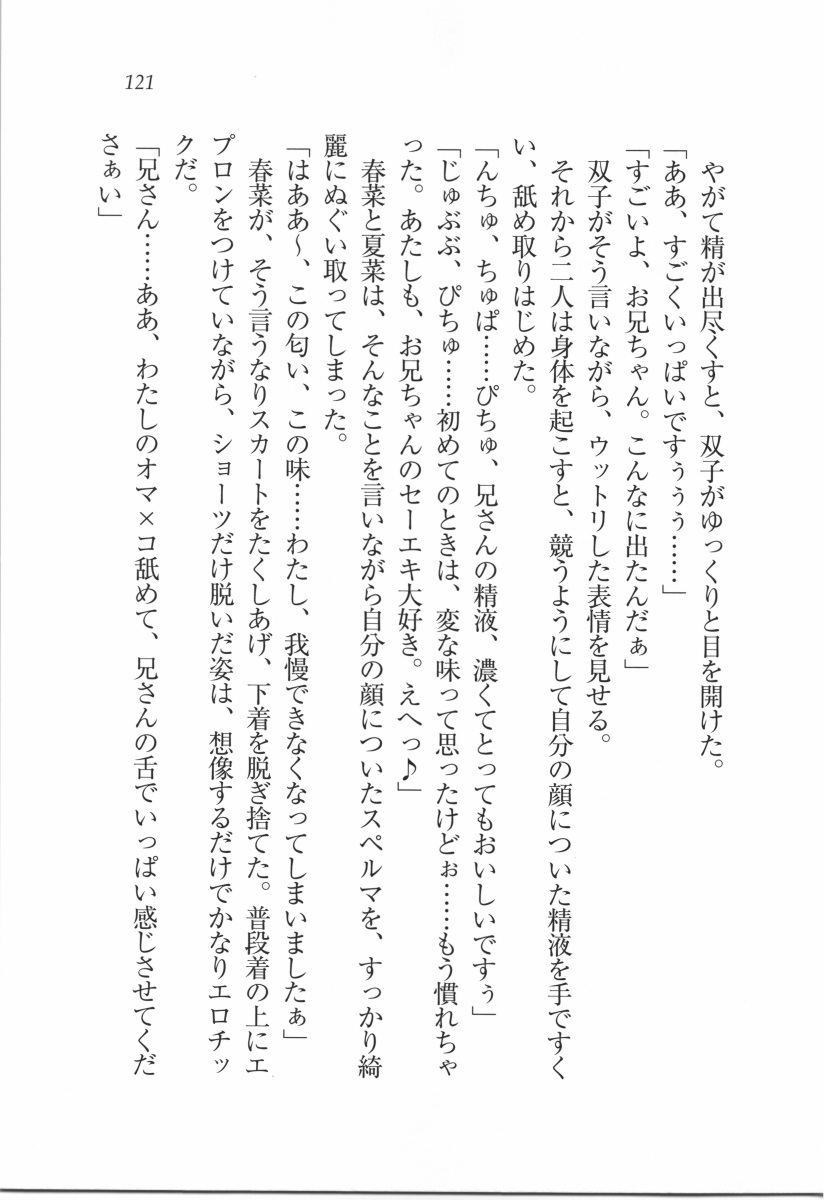 121
やがて精が出尽くすと、双子がゆっくりと目を開けた。
「ああ、すごくいっぱいですぅぅぅ……」
「すごいよ、お兄ちゃん。こんなに出たんだぁ」
双子がそう言いながら、ウットリした表情を見せる。
それから二人は身体を起こすと、競うようにして自分の顔についた精液を手ですく
い、舐め取りはじめた。
「んちゅ、ちゅぱ……ぴちゅ、兄さんの精液、濃くてとってもおいしいですぅ」
「じゅぶぶ、ぴちゅ……初めてのときは、変な味って思ったけどぉ……もう慣れちゃ
った。あたしも、お兄ちゃんのセーエキ大好き。えへっ♪」
春菜と夏菜は、そんなことを言いながら自分の顔についたスペルマを、すっかり綺
麗にぬぐい取ってしまった。
「はああ〜、この匂い、この味……わたし、我慢できなくなってしまいましたぁ」
春菜が、そう言うなりスカートをたくしあげ、下着を脱ぎ捨てた。普段着の上にエ
プロンをつけていながら、ショーツだけ脱いだ姿は、想像するだけでかなりエロチッ
クだ。
「兄さん……ああ、わたしのオマ×コ舐めて、兄さんの舌でいっぱい感じさせてくだ
さぁい」